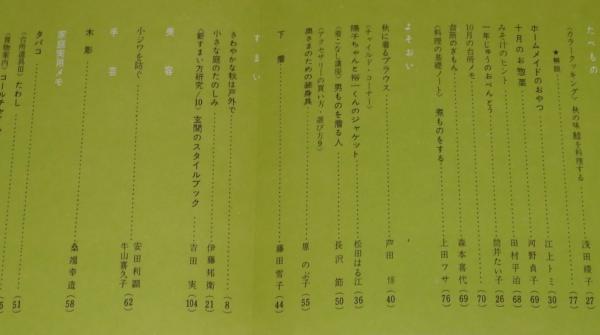 たべもの
〈カラークッキング〉秋の味 鮭を料理する 浅田峰子 (27
★解説 (77
ホームメイドのおやつ 江上トミ (30
十月のお惣菜 河野貞子 (69
みそ汁のヒント 田村平治 (68
一年じゅうのおべんとう 筒井たい子 (26
10月の台所メモ (70
台所のぎもん 森本喜代 (69
〈料理の基礎ノート〉煮ものをする 上田フサ (76
よそおい
秋に着るブラウス 芦田 (40
〈チャイルド・コーナー〉
陽子ちゃんと裕一くんのジャケット 松田はる江 (36
〈着こなし講座〉男ものを着る人 長沢 節 (50
〈アクセサリーの買い方・選び方9〉
奥さまのための装身具 原 のぶ子 (55
下着 藤田雪子 (44
すまい
さわやかな秋は戸外で (8
小さな庭のたのしみ 伊藤邦衛 (21
〈新すまい方研究/10〉玄関のスタイルブック 吉田 実 (104
美容
小ジワを防ぐ 安田利顕
牛山喜久子 (62
手芸
木彫 桑畑幸造 (58
家庭実用メモ
タバコ
〈台所道具⑩〉たわし (51
〈買物案内〉